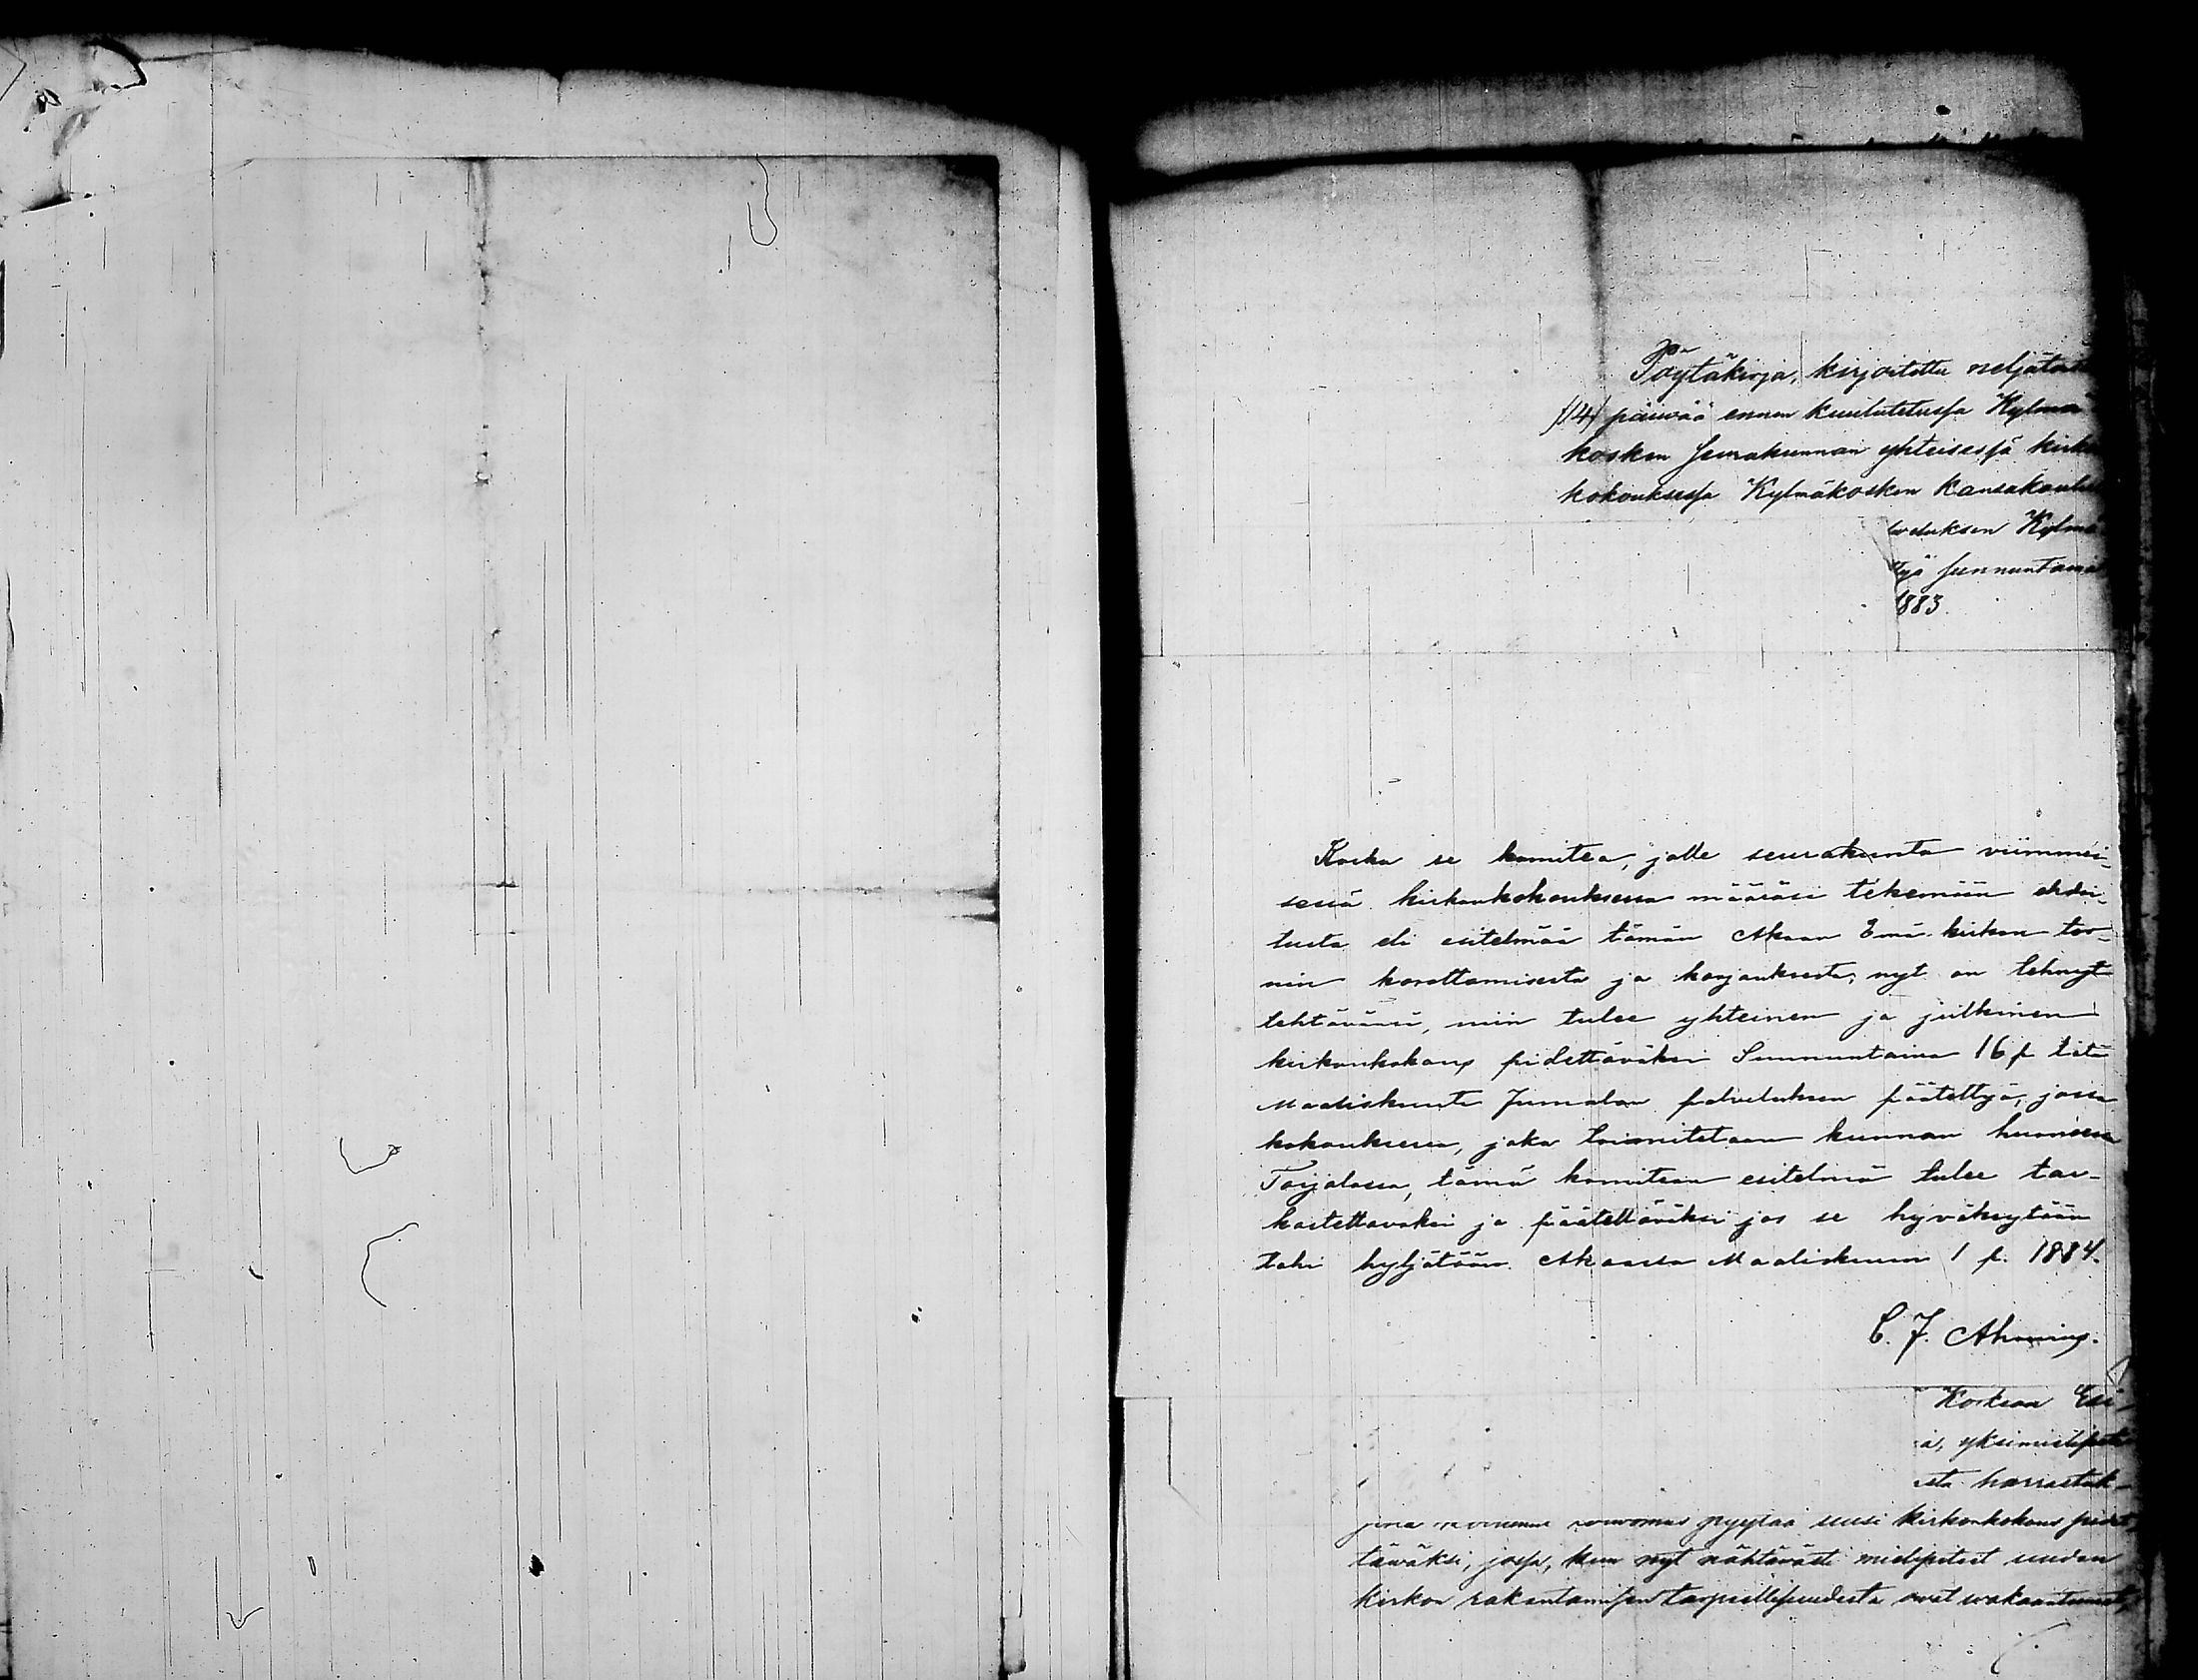 Pöytäkirja, kirjoitettu neljätoist
/14/ päiwää ennen kuulutetussa Kylmä
kosken Seurakunnan yhteisessä kirkon
kokouksessa Kylmäkosken Kansakoulu
weluksen Kylmä
tyä sunnuntaina
1883.
Koska se komitea, jolle seurakunta viimmei-
sessä kirkonkokouksessa määräsi tekemään ehdoi-
tusta eli esitelmää tämän Akaan Emä-kirkon tor-
nin korottamisesta ja korjauksesta, nyt on tehnyt
tehtävänsä, niin tulee yhteinen ja julkinen
kirkonkokous pidettäväksi Sunnuntaina 16 p. tätä
Maaliskuuta Jumalan palveluksen päätettyä, jossa
kokouksessa, joka toimitetaan kunnan huoneessa
Toijalassa, tämä komitean esitelmä tulee tar-
kastettavaksi ja päätettäväksi jos se hyväksytään
tahi hyljätään. Akaassa Maaliskuun 1 p. 1884.
C. J. Ahonius.
Koskaan Esi-
ä, yksimielisesti
sta harrastuk-
pyytää uusi kirkonkokous pidet-
täwäksi, jossa, kun nyt nähtäwästi mielipiteet uuden
kirkon rakentamisen tarpeellisuudesta owat wakaantuneet,